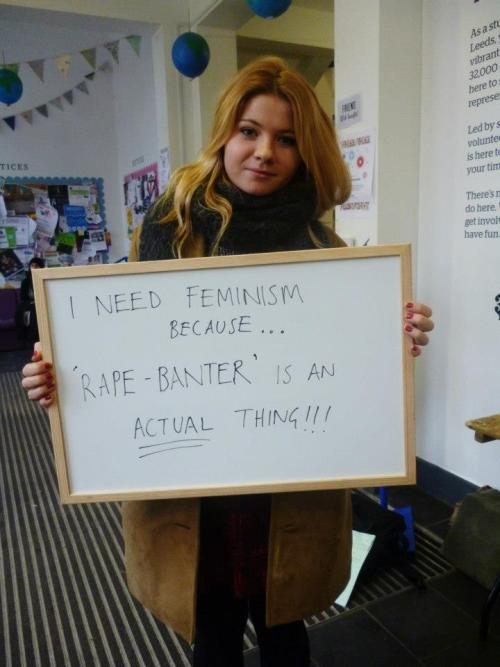 I NEED FEMINISM
BECAUSE...
'RAPE-BANTER' IS AN
ACTUAL THING!!!
As a stu
Leeds,
vibrant
32,000
here to
represe
Led by s
voluntee
is here to
your tim
There's
do here.
get invol
have fun.
TICES